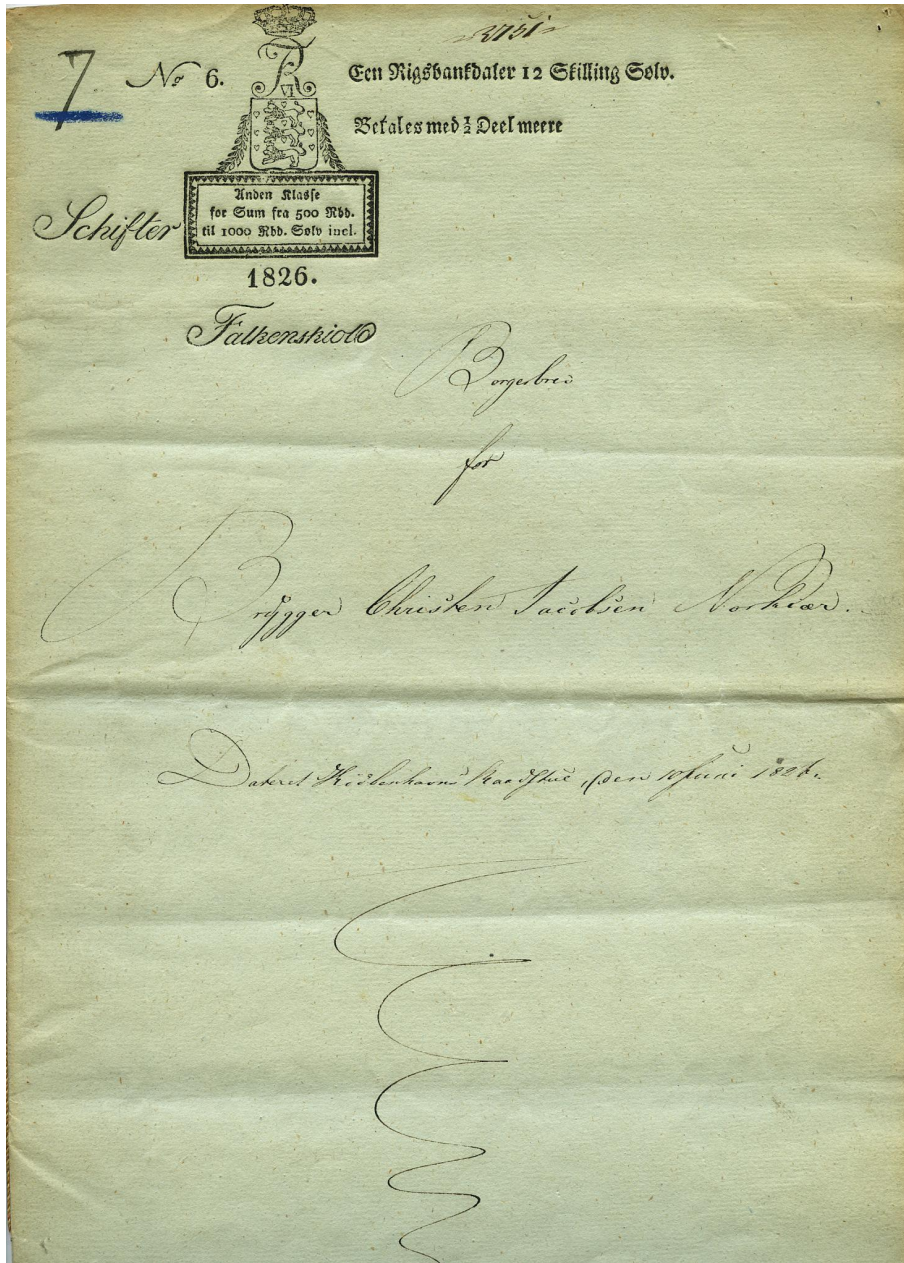 2751
7
No 6.
Een Rigsbankdaler 12 Skilling Sølv.
Betales med ½ Deel meere
FR
VI
Anden Klasse
for Sum fra 500 Rbd.
til 1000 Rbd. Sølv incl.
Schifter
1826.
Falkenskiold
Borgerbrev
for
Brygger Christen Jacobsen Norkiær.
Dateret Kiøbenhavns Raadstue, den 10 Juni 1826.